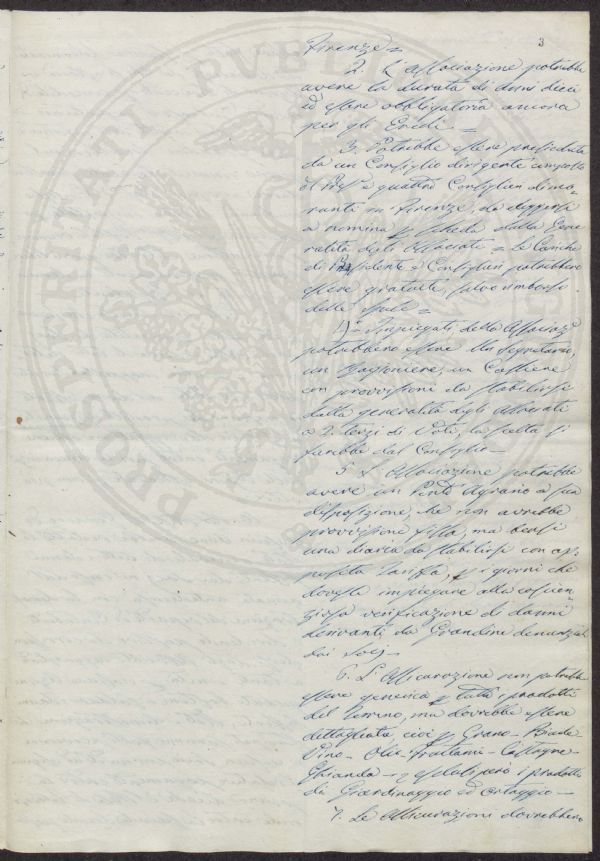 3
Firenze =
2. L'Associazione potrebbe
avere la durata di anni dieci
ed essere obbligatoria ancora
per gli Eredi. =
3. Potrebbe essere presieduta
da un Consiglio dirigente composto
di Pres.e e quattro Consiglieri dimo-
ranti in Firenze, da eleggersi
a nomina p scheda dalla Gene
ralità degli Associati = Le Cariche
di Presidente e Consiglieri potrebbero
essere gratuite, salvo rimborso
delle spese =
4.° Impiegati della Associaz.e
potrebbero essere Un Segretario,
un Ragioniere, un Cassiere
con provvisioni da stabilirsi
dalla generalità degli Associati
a 2. terzi di Voti, la scelta si
farebbe dal Consiglio =
5 L'Associazione potrebbe
avere un Perito Agrario a sua
disposizione, che non avrebbe
provvisione fissa, ma bensì
una diaria da stabilirsi con ap
posita Tariffa, p i giorni che
dovesse impiegare alla coscien
ziosa verificazione di danni
derivanti da Grandini denunziati
dai Socj =
6. L'Assicurazione non potrebbe
essere generica p tutti i prodotti
del Terreno, ma dovrebbe essere
dettagliata, cioè p Grano = Biade
Vino = Olio = Frattami = Castagne =
Ghianda = esclusi però i prodotti
di Giardinaggio ed ortaggio =
7. Le Assicurazioni dovrebbero
PROSPERITATI PVBLICAE